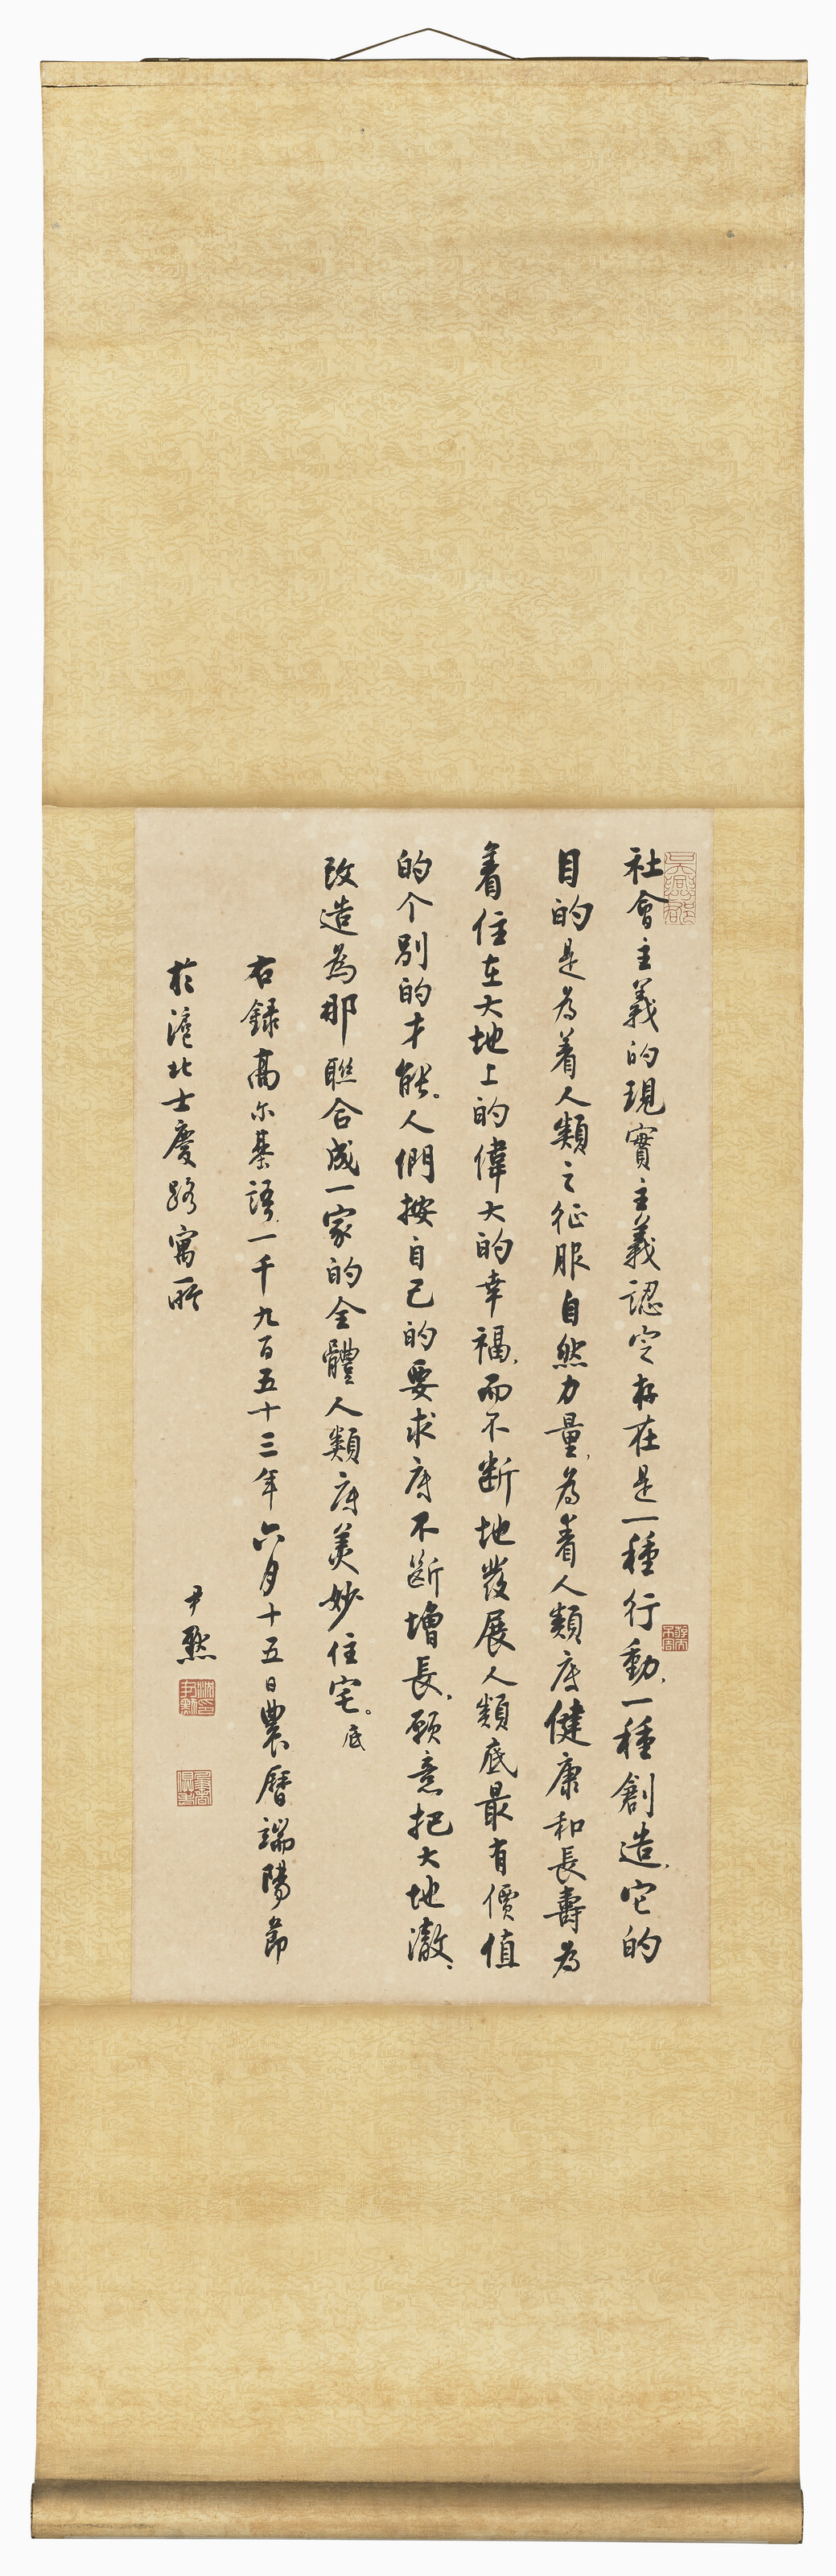 社會主義的現實主義認定存在是一種行動，一種創造，它的
目的是為着人類之征服自然力量，為着人類底健康和長壽為
着住在大地上的偉大的幸福，而不断地發展人類底最有價值
的个別的才能。人們按自己的要求底不斷增長，願意把大地澈、
改造為那聯合成一家的全體人類底美妙住宅。底
右録高尔基語，一千九百五十三年六月十五日農曆端陽節
於滬北士慶路寓所
尹默